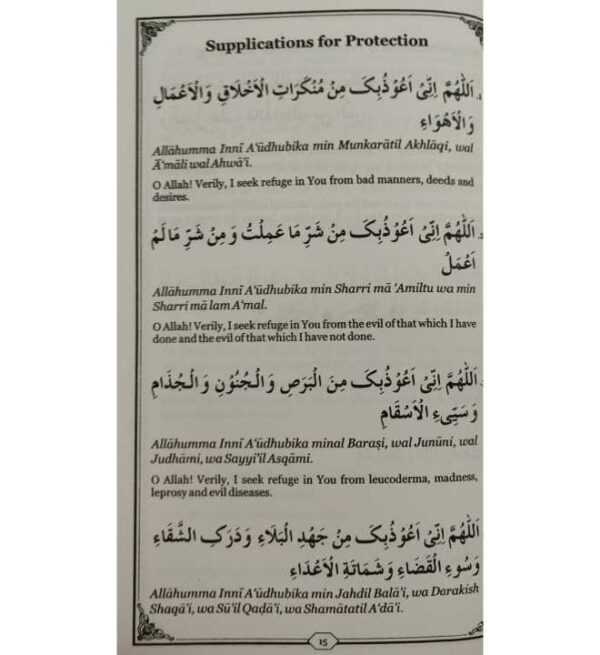 Supplications for Protection
اَللّٰهُمَّ اِنِّیْ اَعُوْذُبِکَ مِنْ مُنْکَرَاتِ الْاَخْلَاقِ وَالْاَعْمَالِ
وَالْاَهْوَاءِ
Allāhumma Innī A'ūdhubika min Munkarātil Akhlāqi, wal
Ā'māli wal Ahwā'i.
O Allah! Verily, I seek refuge in You from bad manners, deeds and
desires.
اَللّٰهُمَّ اِنِّیْ اَعُوْذُبِکَ مِنْ شَرِّ مَا عَمِلْتُ وَمِنْ شَرِّ مَالَمْ
اَعْمَلْ
Allāhumma Innī A'ūdhubika min Sharri mā 'Amiltu wa min
Sharri mā lam A'mal.
O Allah! Verily, I seek refuge in You from the evil of that which I have
done and the evil of that which I have not done.
اَللّٰهُمَّ اِنِّیْ اَعُوْذُبِکَ مِنَ الْبَرَصِ وَالْجُنُوْنِ وَالْجُذَامِ
وَسَیِّیءِ الْاَسْقَامِ
Allāhumma Innī A'ūdhubika minal Baraṣi, wal Junūni, wal
Judhāmi, wa Sayyi'il Asqāmi.
O Allah! Verily, I seek refuge in You from leucoderma, madness,
leprosy and evil diseases.
اَللّٰهُمَّ اِنِّیْ اَعُوْذُبِکَ مِنْ جَهْدِ الْبَلَاءِ وَدَرَکِ الشَّقَاءِ
وَسُوءِ الْقَضَاءِ وَشَمَاتَةِ الْاَعْدَاءِ
Allāhumma Innī A'ūdhubika min Jahdil Balā'i, wa Darakish
Shaqā'i, wa Sū'il Qaḍā'i, wa Shamātatil A'dā'i.
15